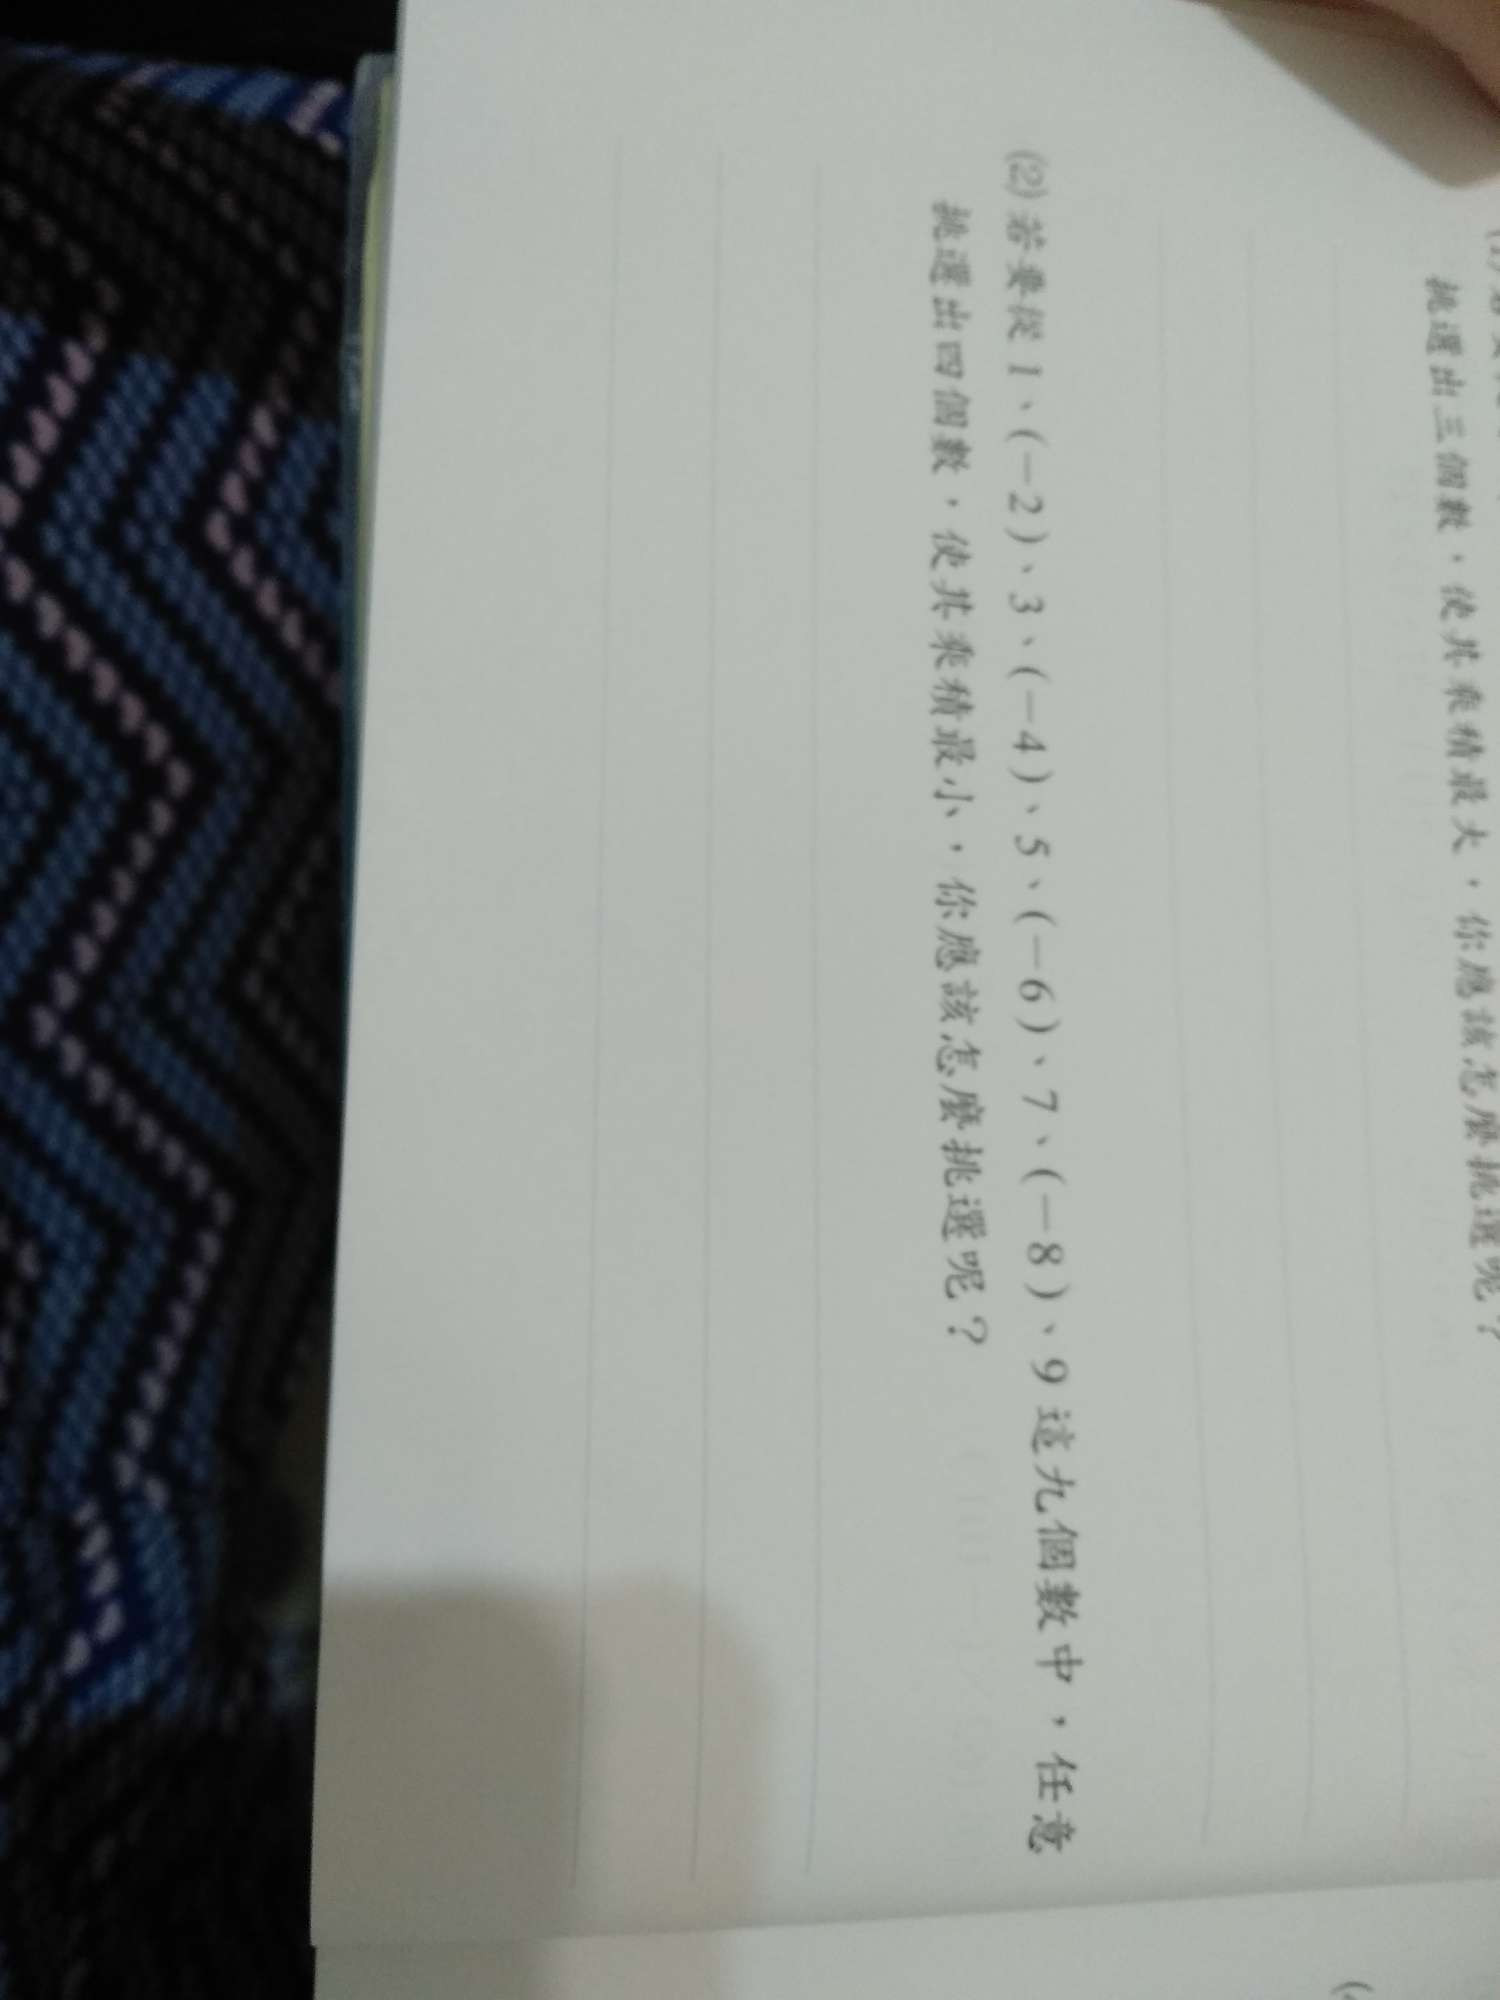 挑選出三個數,使其乘積最大,你應該怎麼挑選呢?
(2) 若要從 1、(-2)、3、(-4)、5、(-6)、7、(-8)、9 這九個數中,任意
挑選出四個數,使其乘積最小,你應該怎麼挑選呢?